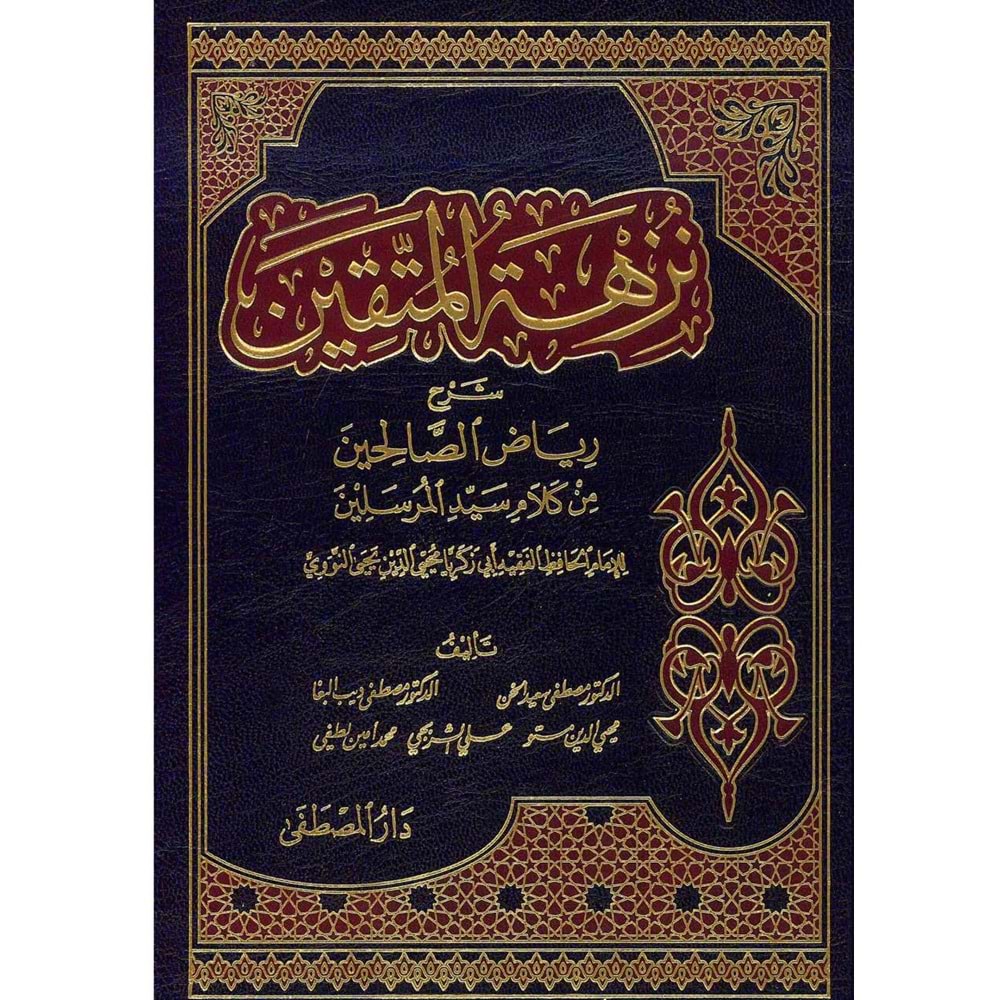 نُزْهَةُ المُتَّقِينَ
شَرْح
رِيَاضِ ٱلصَّالِحِينَ
مِنْ كَلَامِ سَيِّدِ ٱلْمُرْسَلِيْنَ
لِلإِمَامِ ٱلْحَافِظِ ٱلْفَقِيْهِ أَبِي زَكَرِيَّا مُحْيِي ٱلدِّيْنِ يَحْيَى ٱلنَّوَوِيِّ
تَأْلِيْفُ
الدكتور مصطفى سعيد الخن الدكتور مصطفى ديب البغا
محيي الدين مستو علي الشربجي محمد أمين لطفي
دَارُ ٱلْمُصْطَفَى